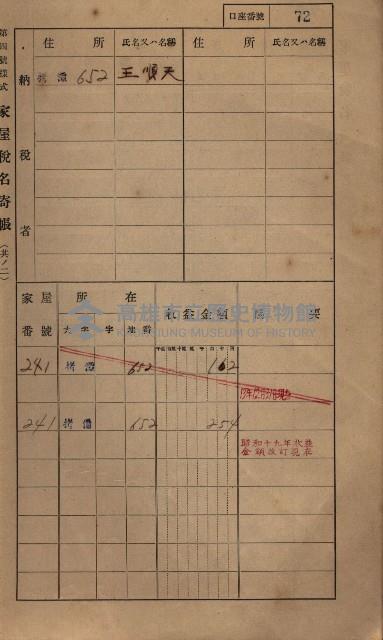 口座番號 72
第四號樣式 家屋稅名寄帳 (其ノ二)
住所 氏名又ハ名稱 住所 氏名又ハ名稱
納稅者
652 王順天
家屋番號 所在 收益金額 摘要
大字 字 地番
高雄市立歷史博物館
KAOHSIUNG MUSEUM OF HISTORY
241 652 162
241 652 254
昭和十九年收益
金額改訂現在